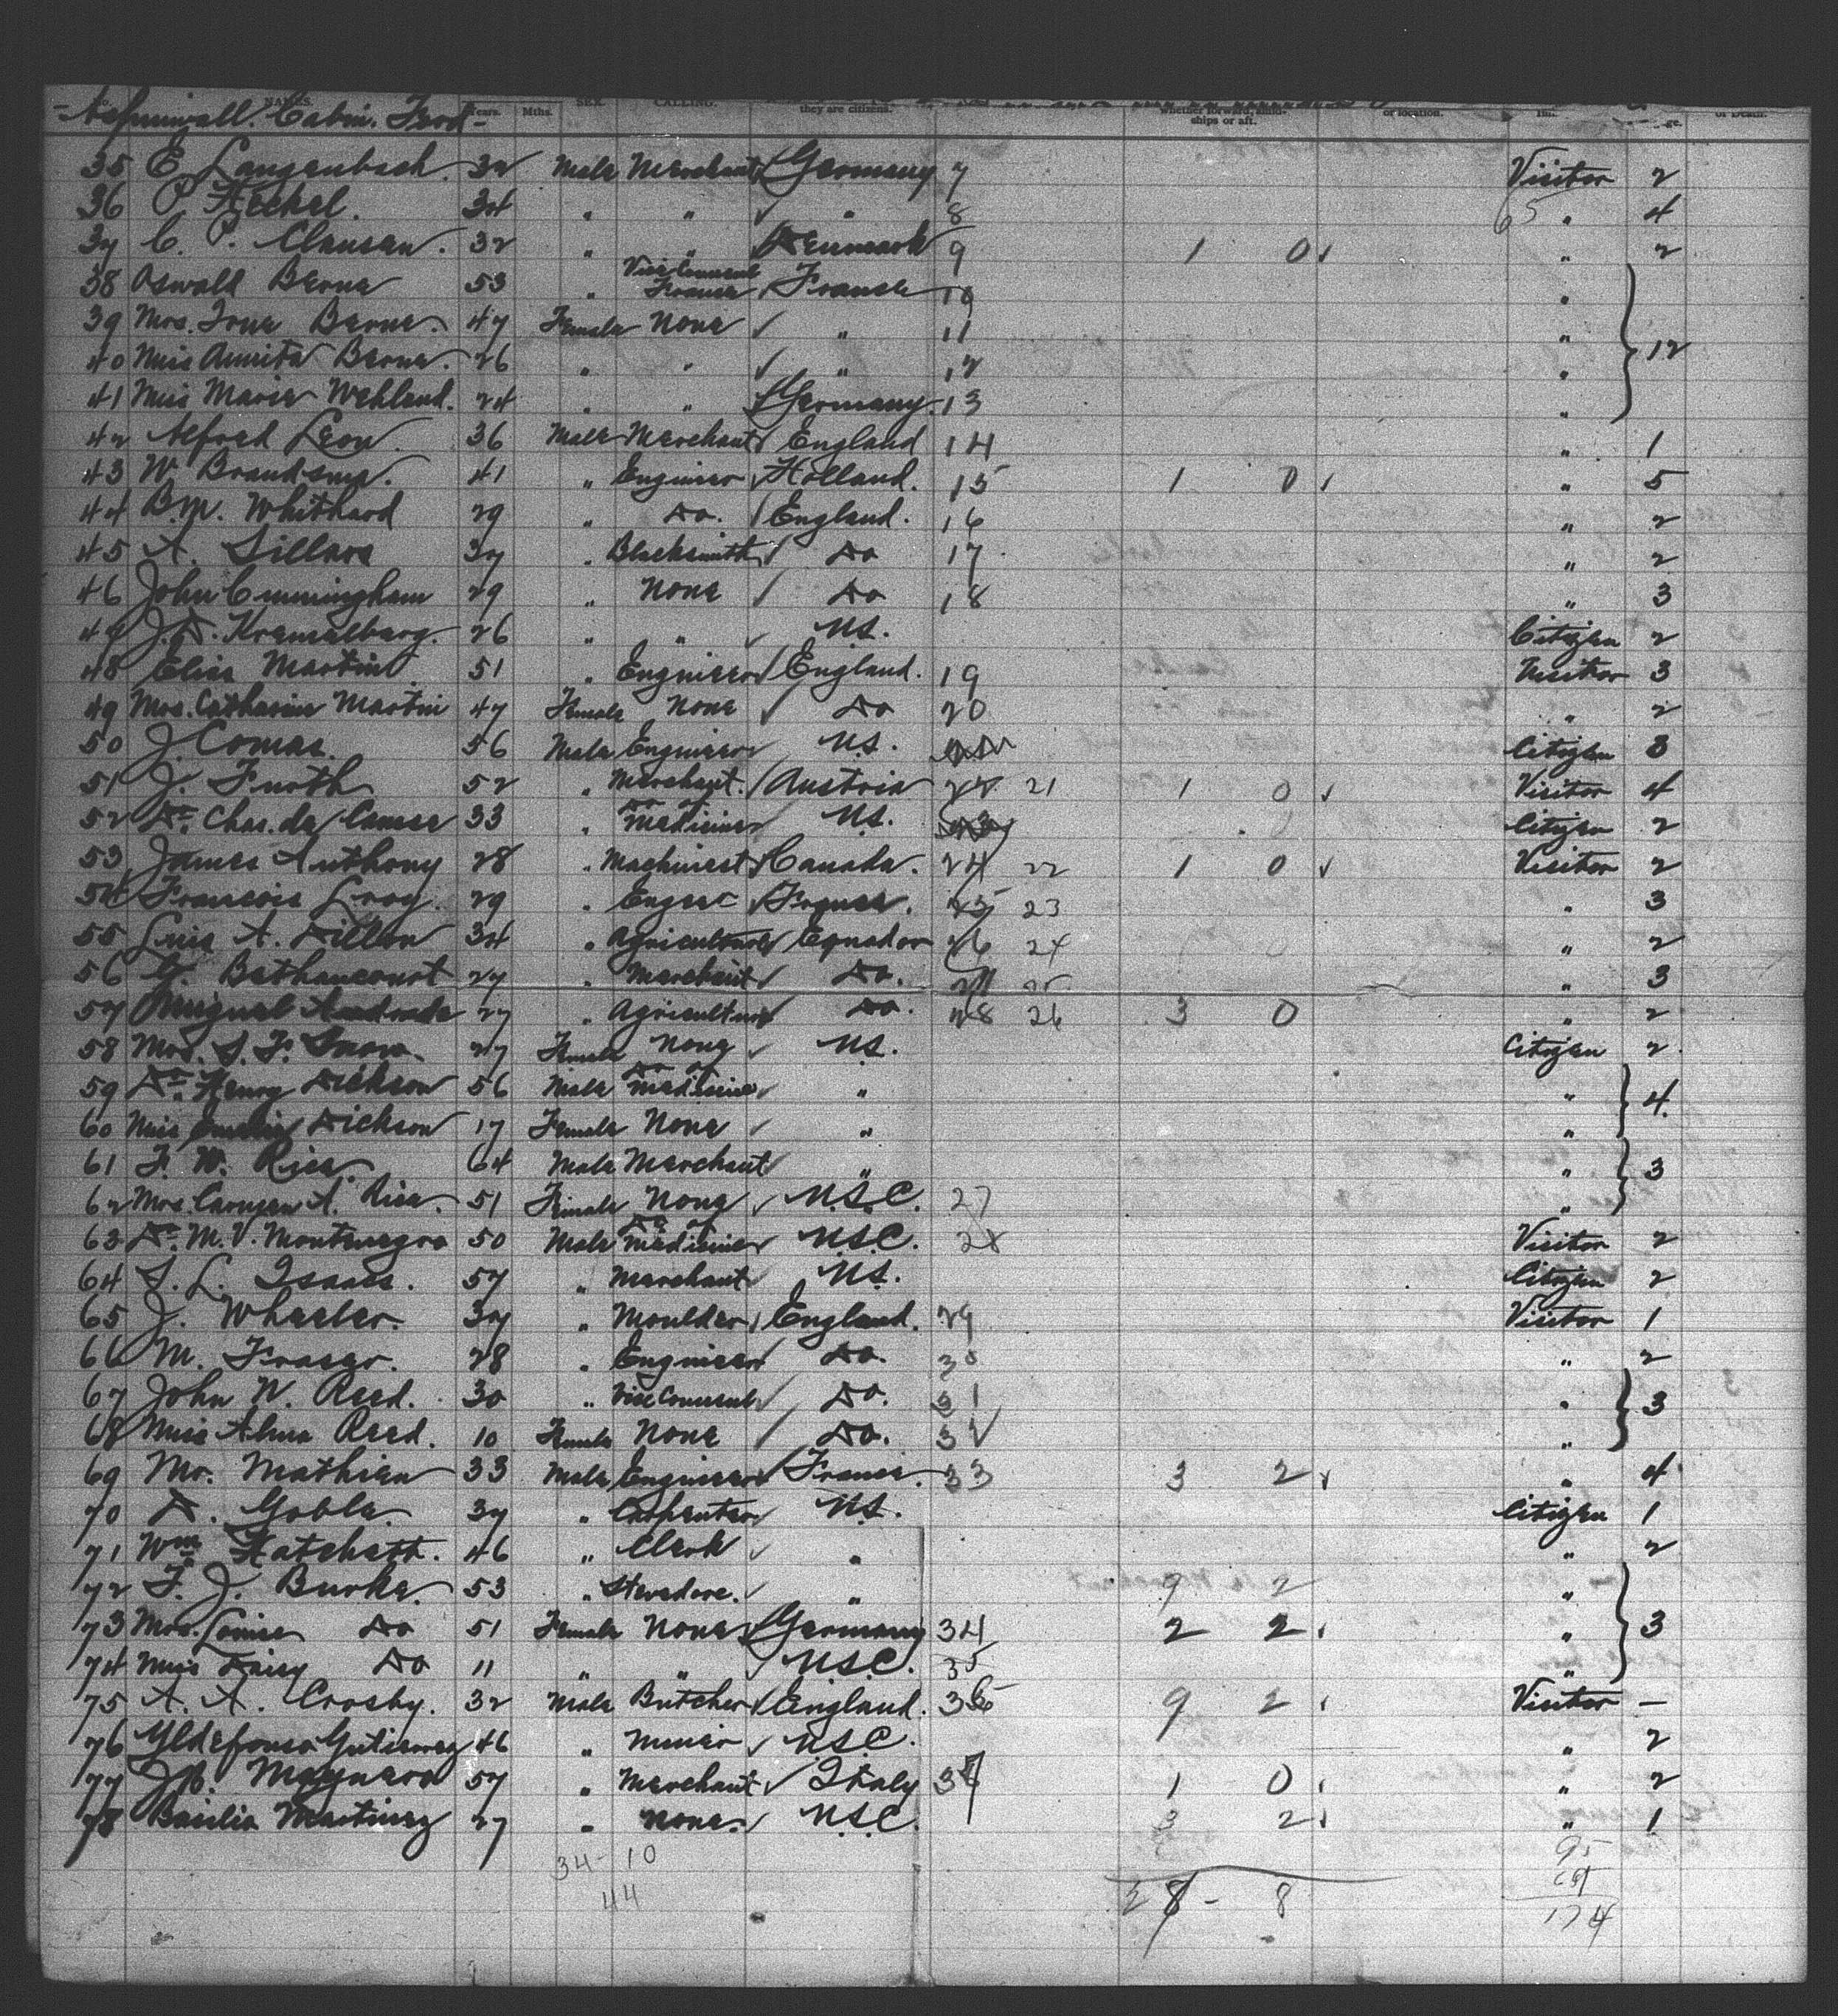 No. NAMES. Years. Mths. SEX. CALLING. they are citizens. whether forward, amidships or aft. or location. of Death.
Aspinwall. Cabin. Fwd-
35 E. Langenbach. 32 Male Merchant Germany 7 Visitor 2
36 P. Heckel. 34 " " " 8 65 " 4
37 C. P. Clausen. 32 " " Denmark 9 1 0 " 2
38 Oswald Berne 53 " Vice Consul France France 10 "
39 Mrs. Berne. 47 Female None " 11 "
40 Miss Berne. 26 " " " 12 " 12
41 Miss Marie Wehland. 24 " " Germany. 13 "
42 Alfred Leon. 36 Male Merchant England 14 " 1
43 W. Brandsma. 41 " Engineer Holland. 15 1 0 " 5
44 B.W. Whithard 29 " Do. England. 16 " 2
45 A. Sillars 37 " Blacksmith Do 17 " 2
46 John Cunningham 29 " None Do 18 " 3
47 J.D. 26 " " U.S. Citizen 2
48 Elias Martin 51 " Engineer England. 19 Visitor 3
49 Mrs. Catharine Martin 47 Female None Do 20 " 2
50 J. Comas. 56 Male Engineer U.S. Citizen 3
51 J. Furth 52 " Merchant. Austria 22 21 1 0 Visitor 4
52 Dr. Chas. de 33 " Dr of Medicine U.S. Citizen 2
53 James Anthony 28 " Machinest Canada. 24 22 1 0 Visitor 2
54 Francois Leroy. 29 " France. 25 23 " 3
55 Luis A. Dillon 34 " Agriculture Equador 26 24 " 2
56 G. Bethancourt 27 " Merchant Do. 25 " 3
57 Miguel Andrade 27 " Agriculture Do. 28 26 3 0 " 2
58 Mrs. S. F. Snow. 27 Female None U.S. Citizen 2
59 Dr. Henry Dickson 56 Male Dr of Medicine " "
60 Miss Dickson 17 Female None " " 4
61 F. W. Rice. 64 Male Merchant " "
62 Mrs. Carmen A. Rice. 51 Female None U.S.C. 27 " 3
63 Dr. M. V. Montenegro 50 Male Dr of Medicine U.S.C. 28 Visitor 2
64 S. L. Isaacs. 57 " Merchant U.S. Citizen 2
65 J. Wheeler. 37 " Moulder England. 29 Visitor 1
66 M. Fraser. 28 " Engineer Do. 30 " 2
67 John W. Reed. 30 " Vice Consul Do. 31 "
68 Miss Alma Reed. 10 Female None Do. 32 " 3
69 Mr. Mathieu 33 Male Engineer France. 33 3 2 " 4
70 D. Goble 37 " Carpenter U.S. Citizen 1
71 Wm. Hatchett. 46 " Clerk " " 2
72 F. J. Burke. 53 " Stevedore. " 9 2 "
73 Mrs. Louise Do 51 Female None Germany 34 2 2 " 3
74 Miss Daisy Do 11 " " U.S.C. 35 "
75 A. A. Crosby. 32 Male Butcher England. 36 9 2 Visitor –
76 Yldefonso Gutierrez 46 " Miner U.S.C. " 2
77 57 " Merchant Italy 1 0 " 2
78 Basilio Martinez 27 " None. U.S.C. 3 2 " 1
34 - 10
44
28 - 8
95
174